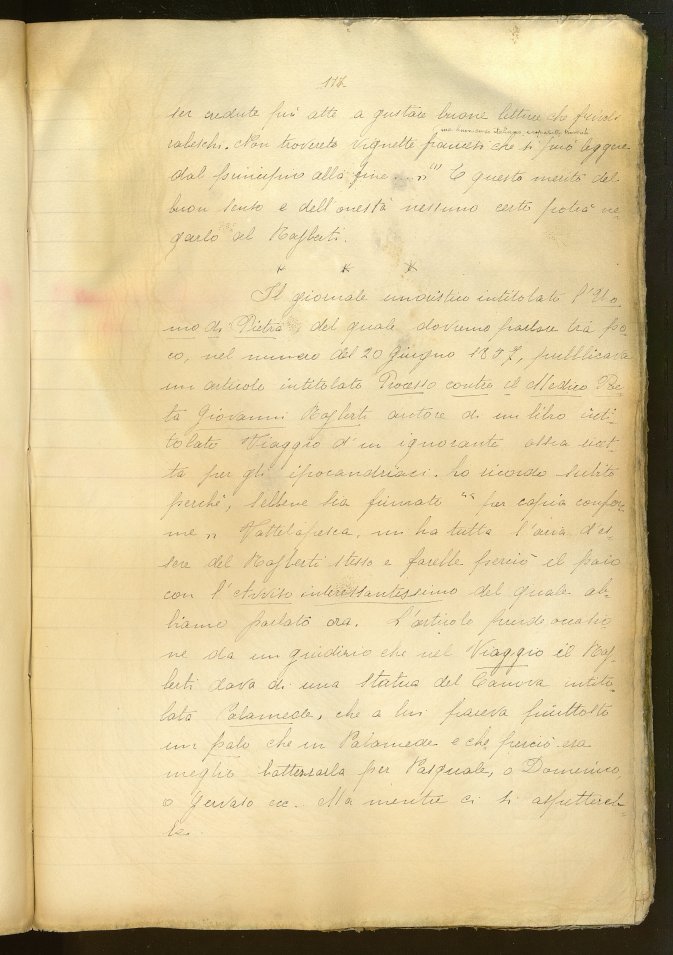 117
ser credute più atte a gustare buone letture che frivoli
rabeschi. Non troverete vignette francesi che si può leggere
dal principio alla fine...." (1) E questo merito del
buon senso e dell'onestà nessuno certo potrà ne-
garlo al Rajberti.
* * *
Il giornale umoristico intitolato l'Uo-
mo di Pietra, del quale dovremo parlare tra po-
co, nel numero del 20 giugno 1857, pubblicava
un articolo intitolato Processo contro il Medico Poe-
ta Giovanni Rajberti autore di un libro inti-
tolato Viaggio d'un ignorante ossia ricet-
ta per gli ipocondriaci. Lo ricordo subito
perchè, sebbene sia firmato "per copia confor-
me" Vattelapesca, un ha tutta l'aria d'es-
sere del Rajberti stesso e farebbe perciò il paio
con l'Avviso interessantissimo del quale ab-
biamo parlato ora. L'articolo prende occasio-
ne da un giudizio che nel Viaggio il Raj-
berti dava di una statua del Canova intito-
lata Palamede, che a lui pareva piuttosto
un palo che un Palamede e che perciò era
meglio battezzarla per Pasquale, o Domenico,
o Gervaso ecc. Ma mentre ci si aspettereb-
be